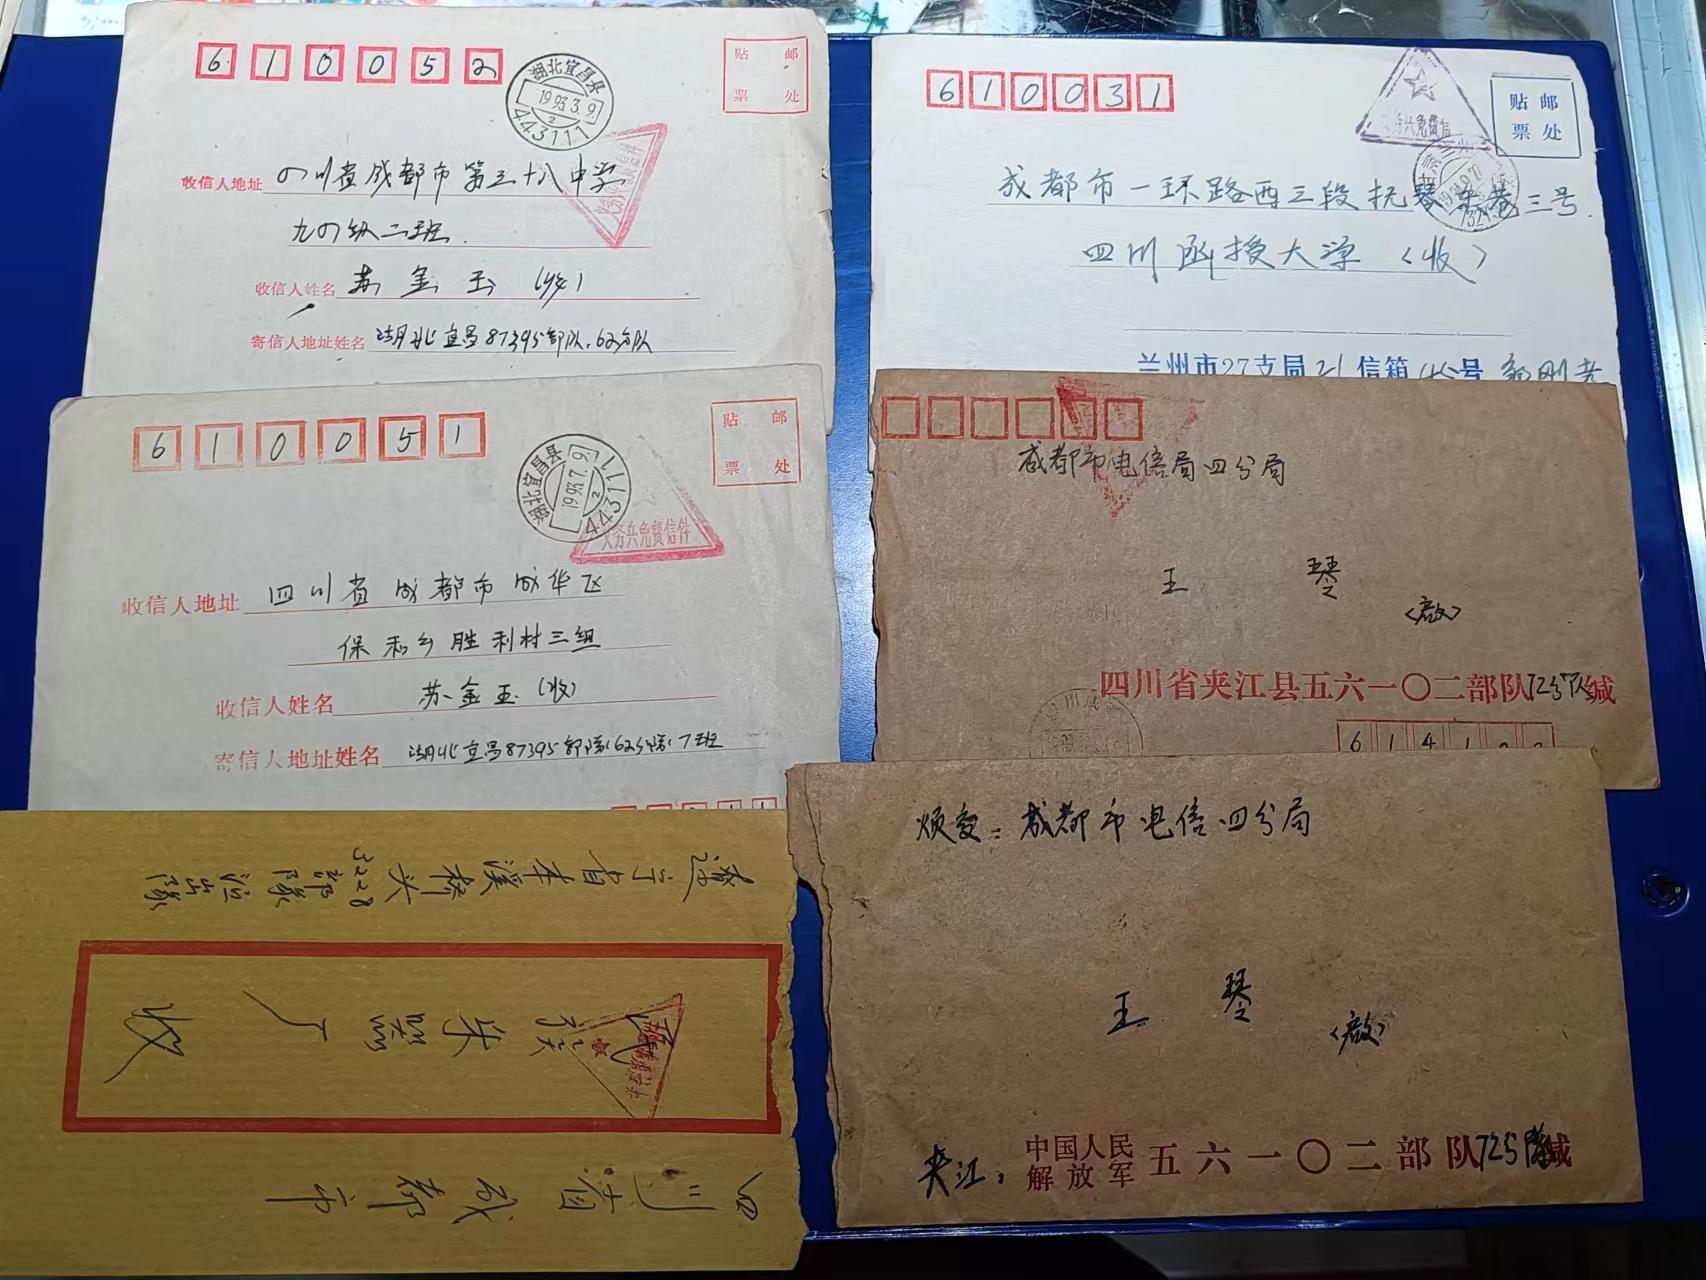 610052
湖北宜昌县
1993.3.9
2
443111
贴 邮
票 处
收信人地址 四川省成都市第三十八中学
九四级二班
收信人姓名 苏金玉(收)
寄信人地址姓名 湖北宜昌87395部队62分队
610031
义务兵免费信
贴 邮
票 处
成都市一环路西三段抚琴东巷三号
四川函授大学(收)
兰州市27支局21信箱45号
610051
湖北宜昌县
1993.7.9
2
443111
义务兵免费信件
贴 邮
票 处
收信人地址 四川省成都市成华区
保和乡胜利村三组
收信人姓名 苏金玉(收)
寄信人地址姓名 湖北宜昌87395部队62分队7班
成都市电信局四分局
王琴
<启>
四川省夹江县五六一〇二部队72分队缄
6141
辽宁省本溪桥头
3228部队
收
四川省成都市
烦交:成都市电信四分局
王琴
<启>
夹江:中国人民解放军五六一〇二部队725 缄